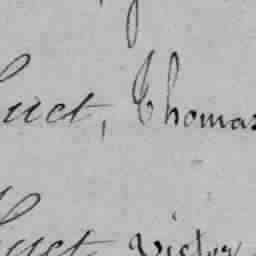 uct, Thomas
uct, Victor